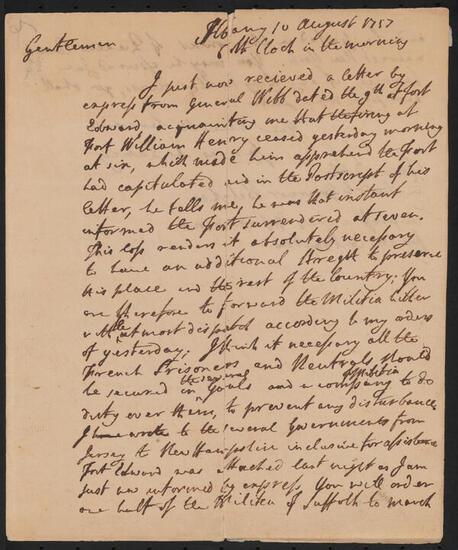 Albany 10 August 1757
6 oth Clock in the morning
Gentlemen
I just now recieved a letter by
express from General Webb dated the 9th at fort
Edward acquainting me that the firing at
Fort William Henry ceased yesterday morning
at six, which made him apprehend the Fort
had capitulated and in the Postscript of his
letter, he tells me, he was that instant
informed the Fort surrendered at seven.
This loss renders it absolutely necessary
to have an additional Stregth to preserve
this place and the rest of the Country; You
are therefore to forward the Militia hither
with the utmost dispatch according to my orders
of yesterday; I think it necessary all the
French Prisoners and Neutrals should
be secured in the several Goals and a company of Militia to do
duty over them, to prevent any disturbance
I have wrote to the several Governments from
Jersey to New Hampshire inclusive for assistance
Fort Edward was attacked last night as I am
just now informed by express You will order
one half of the Militia of Suffolk to march